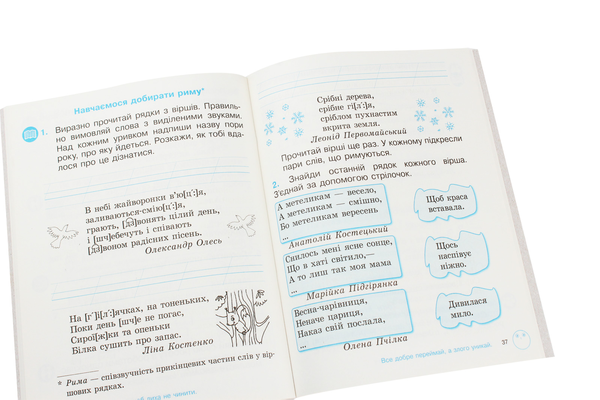 Навчаємося добирати риму*
1. Виразно прочитай рядки з віршів. Правиль-
но вимовляй слова з виділеними звуками.
Над кожним уривком надпиши назву пори
року, про яку йдеться. Розкажи, як тобі вда-
лося про це дізнатися.
В небі жайворонки в'ю[ц':]я,
заливаються-смію[ц':]я,
грають, [дз]вонять цілий день,
і [шч]ебечуть і співають
[дз]воном радісних пісень.
Олександр Олесь
На [г'][л':]ячках, на тоненьких,
Поки день [шч]е не погас,
Сирої[ж]ки та опеньки
Білка сушить про запас.
Ліна Костенко
* Рима — співзвучність прикінцевих частин слів у вір-
шових рядках.
Срібні дерева,
срібне гі[л':]я,
сріблом пухнастим
вкрита земля.
Леонід Первомайський
Прочитай вірші ще раз. У кожному підкресли
пари слів, що римуються.
2. Знайди останній рядок кожного вірша.
З'єднай за допомогою стрілочок.
А метеликам — весело,
А метеликам — смішно,
Бо метеликам вересень
...
Анатолій Костецький
Снилось мені ясне сонце,
Що в хаті світило,—
А то лиш так моя мама
...
Марійка Підгірянка
Весна-чарівниця,
Неначе цариця,
Наказ свій послала,
...
Олена Пчілка
Щоб краса
вставала.
Щось
наспівує
ніжно.
Дивилася
мило.
Все добре переймай, а злого уникай.
37